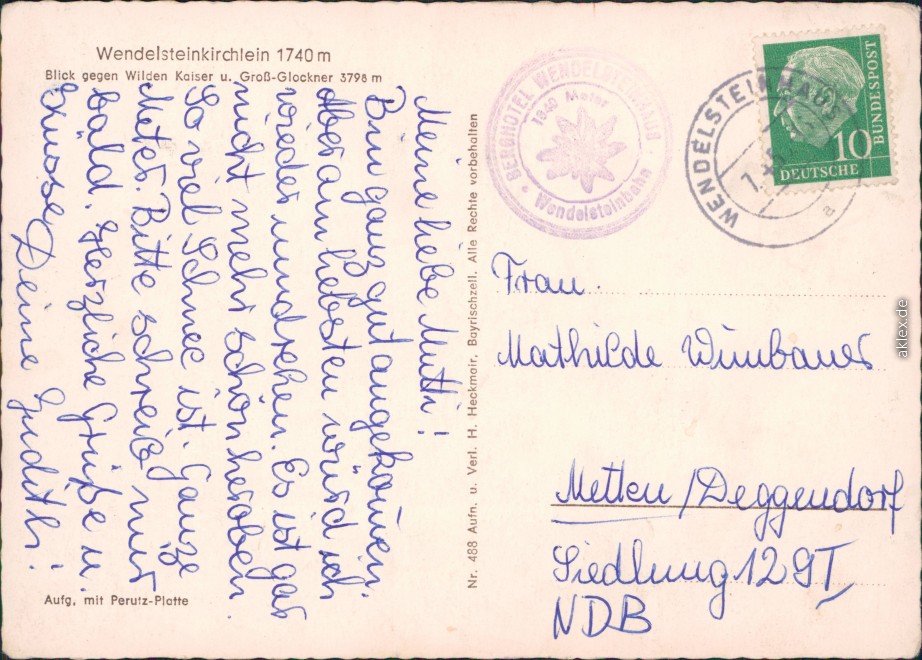 Wendelsteinkirchlein 1740 m
Blick gegen Wilden Kaiser u. Groß-Glockner 3798 m
Meine liebe Mutti!
Bin ganz gut angekom̄en.
Aber am liebsten würd ich
wieder umdrehen. Es ist gar
nicht mehr schön heroben.
So viel Schnee ist. Ganze
Meter. Bitte schreib mir
bald. Herzliche Grüße u.
Küsse Deine Judith!
Aufg, mit Perutz-Platte
Nr. 488 Aufn. u. Verl. H. Heckmair, Bayrischzell. Alle Rechte vorbehalten
BERGHOTEL WENDELSTEINHAUS
1840 Meter
Wendelsteinbahn
WENDELSTEINHAUS
a
10
DEUTSCHE
BUNDESPOST
Frau
Mathilde Wimbauer
Metten/Deggendorf
Siedlung 129 I
NDB
aklex.de